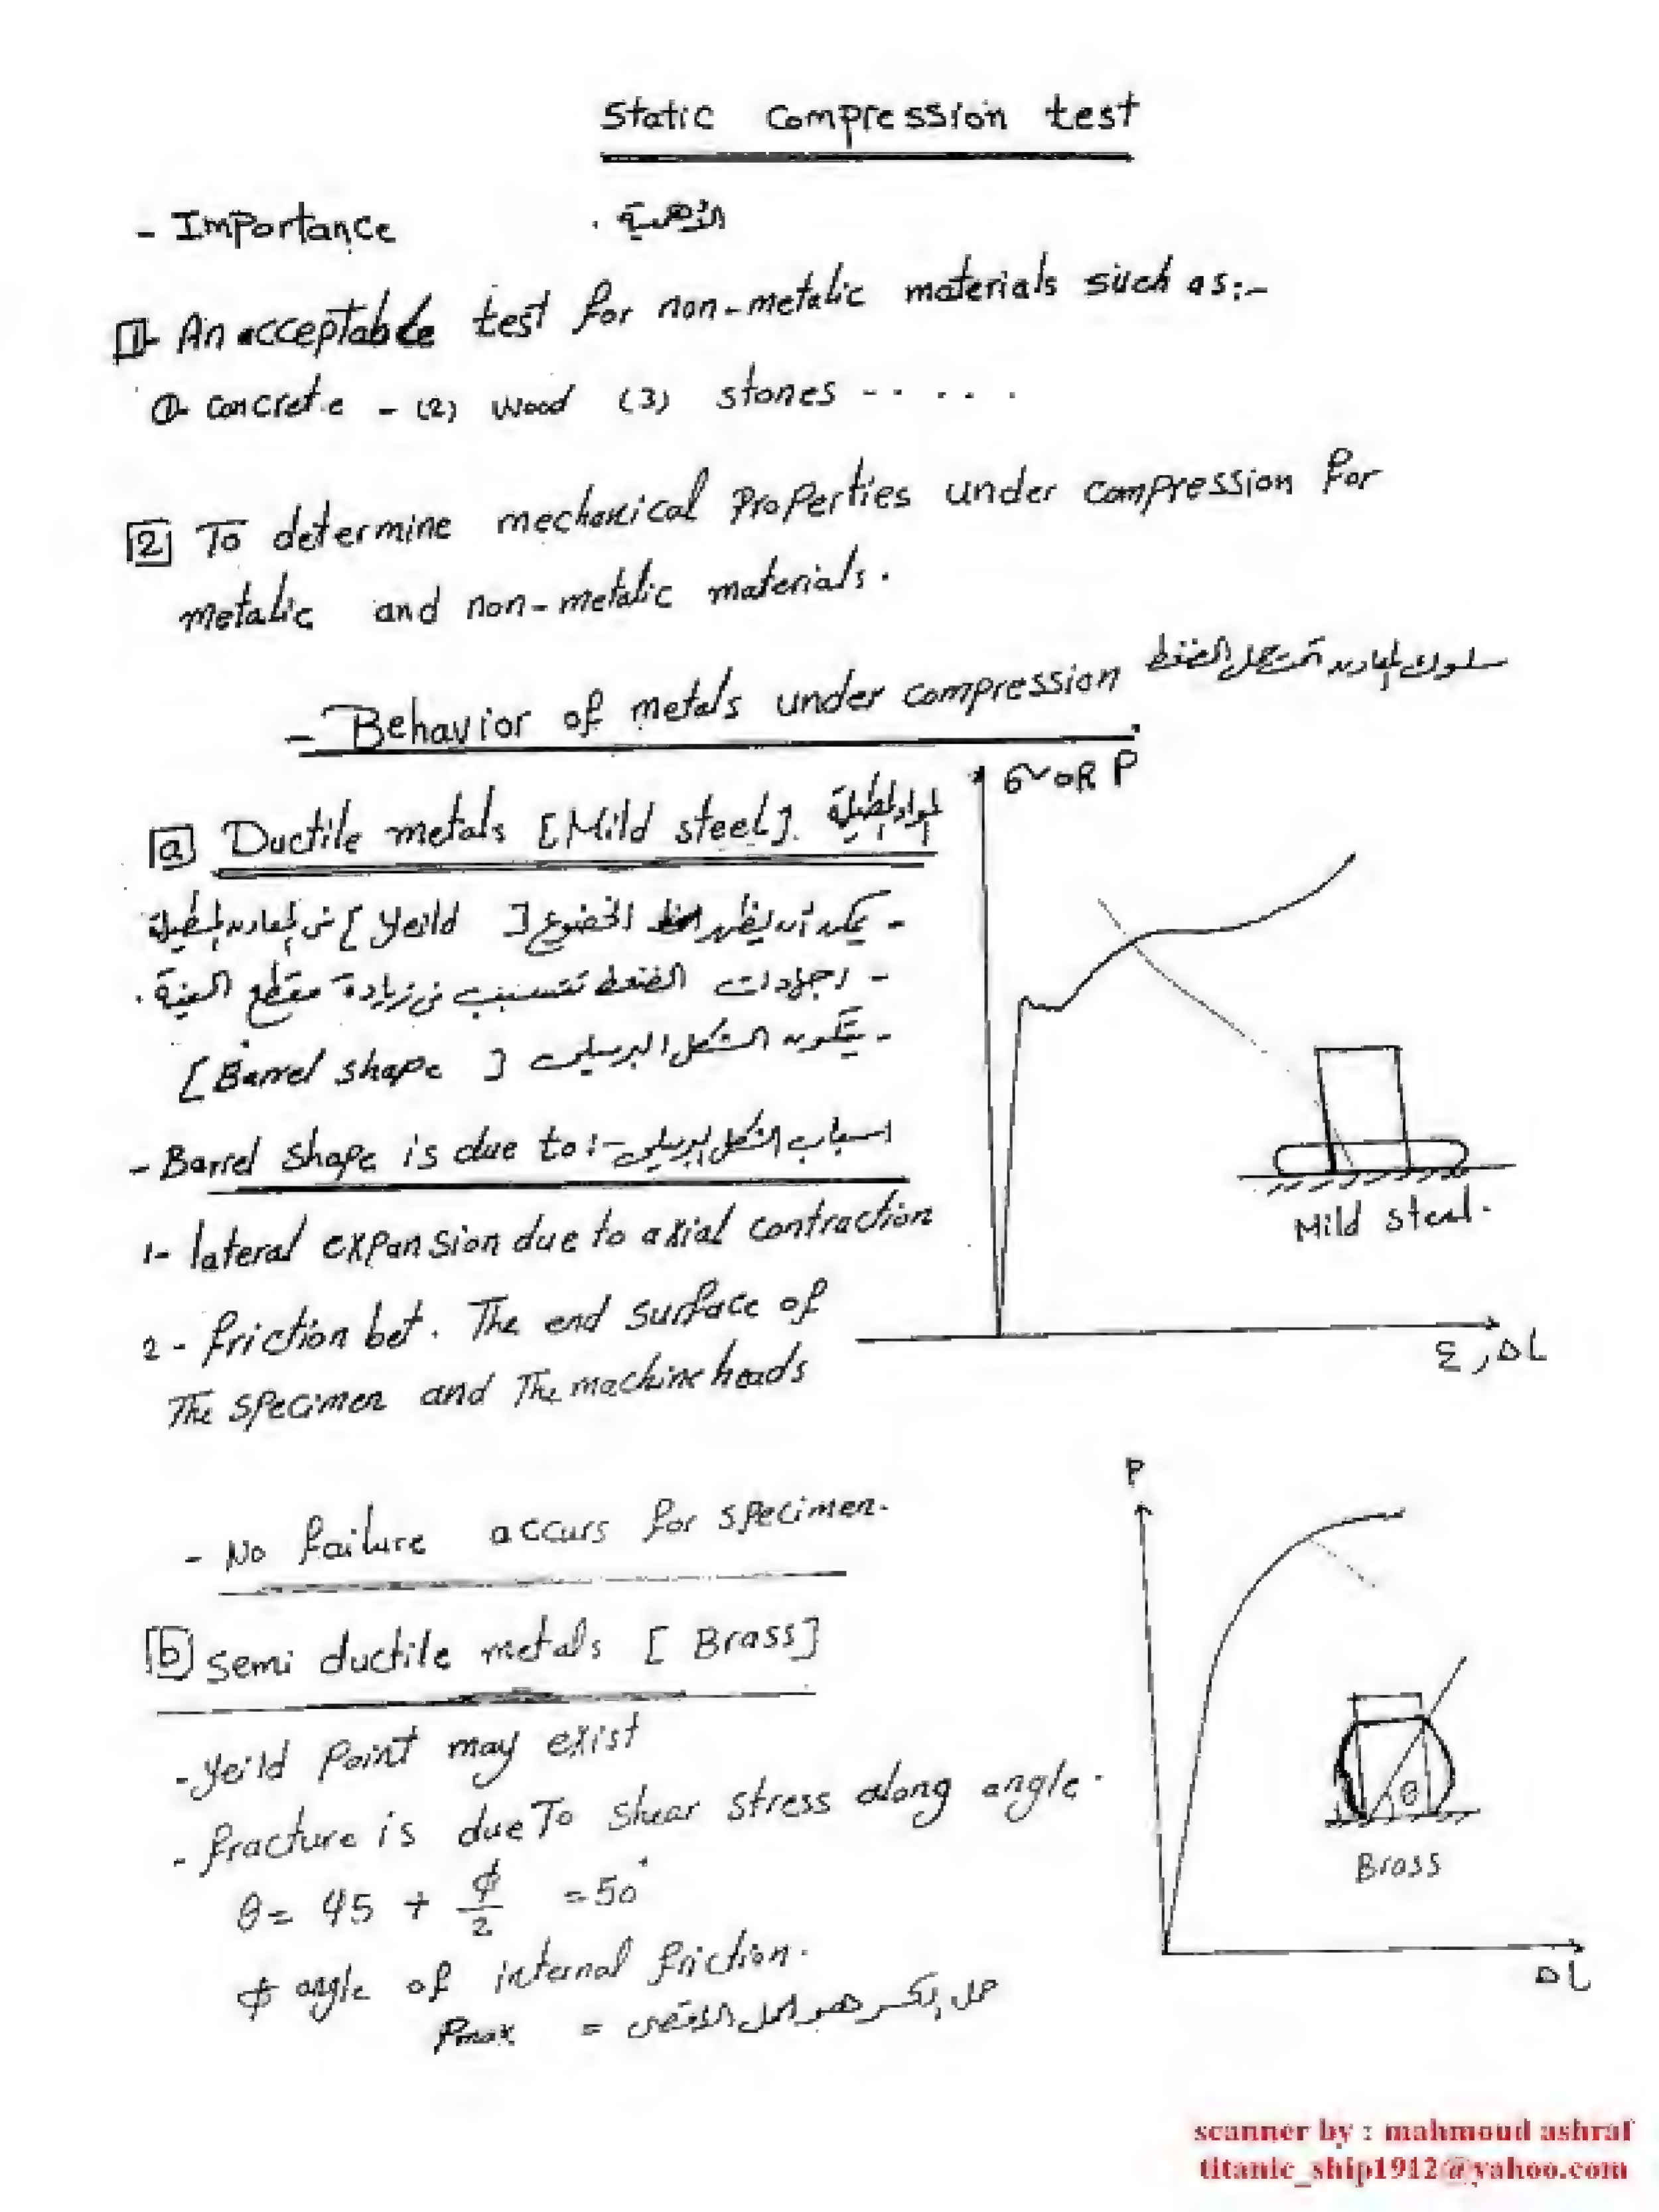 Static compression test
- Importance الأهمية .
1- An acceptable test for non-metalic materials such as:-
1- concrete - (2) wood (3) stones -- . . .
2 To determine mechanical Properties under compression for
metalic and non-metalic materials.
- Behavior of metals under compression سلوك المعادن تحت حمل الضغط
a Ductile metals [Mild steel]. المواد المطيلة
- يمكن أن يظهر الخضوع [ yeild ] في المعادن المطيلة
- اجهادات الضغط تتسبب في زيادة مقطع العينة .
- يتكون الشكل البرميلى [ Barrel shape ]
- Barrel shape is due to :- اسباب الشكل البرميلى
1- lateral expansion due to axial contraction
2- friction bet. The end surface of
The specimen and The machine heads
- No failure accurs for specimen.
σ OR P
Mild steel.
ε , ΔL
b semi ductile metals [ Brass]
- yeild Point may exist
- fracture is due To shear stress along angle.
θ = 45 + φ/2 = 50°
φ angle of internal friction.
حمل الكسر هو الحمل الاقصى = Pmax
P
θ
Brass
ΔL
scanner by : mahmoud ashraf
titanic_ship1912@yahoo.com